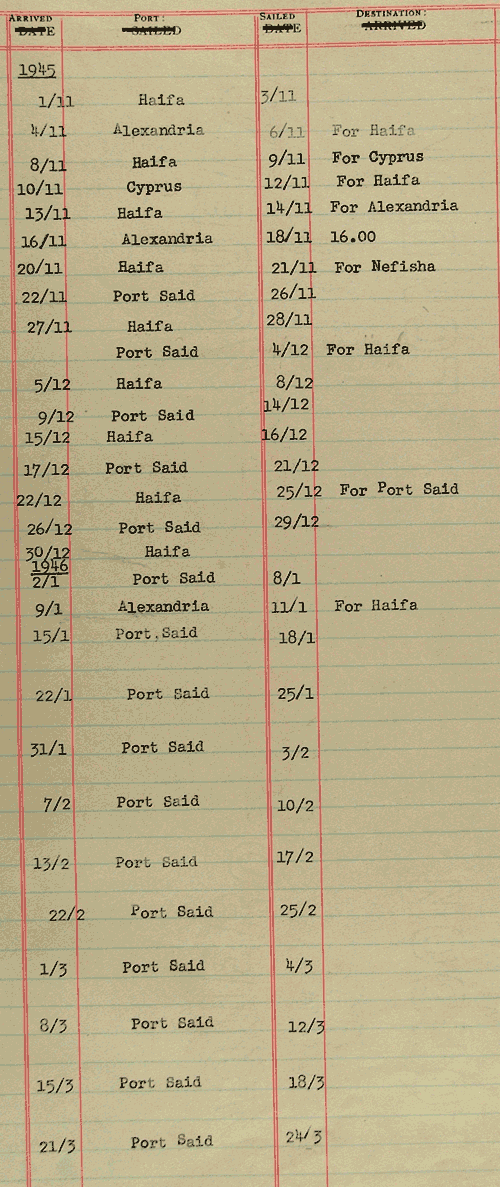 ARRIVED PORT: SAILED DESTINATION:
DATE SAILED DATE ARRIVED
1945
1/11 Haifa 3/11
4/11 Alexandria 6/11 For Haifa
8/11 Haifa 9/11 For Cyprus
10/11 Cyprus 12/11 For Haifa
13/11 Haifa 14/11 For Alexandria
16/11 Alexandria 18/11 16.00
20/11 Haifa 21/11 For Nefisha
22/11 Port Said 26/11
27/11 Haifa 28/11
Port Said 4/12 For Haifa
5/12 Haifa 8/12
9/12 Port Said 14/12
15/12 Haifa 16/12
17/12 Port Said 21/12
22/12 Haifa 25/12 For Port Said
26/12 Port Said 29/12
30/12 Haifa
1946
2/1 Port Said 8/1
9/1 Alexandria 11/1 For Haifa
15/1 Port.Said 18/1
22/1 Port Said 25/1
31/1 Port Said 3/2
7/2 Port Said 10/2
13/2 Port Said 17/2
22/2 Port Said 25/2
1/3 Port Said 4/3
8/3 Port Said 12/3
15/3 Port Said 18/3
21/3 Port Said 24/3